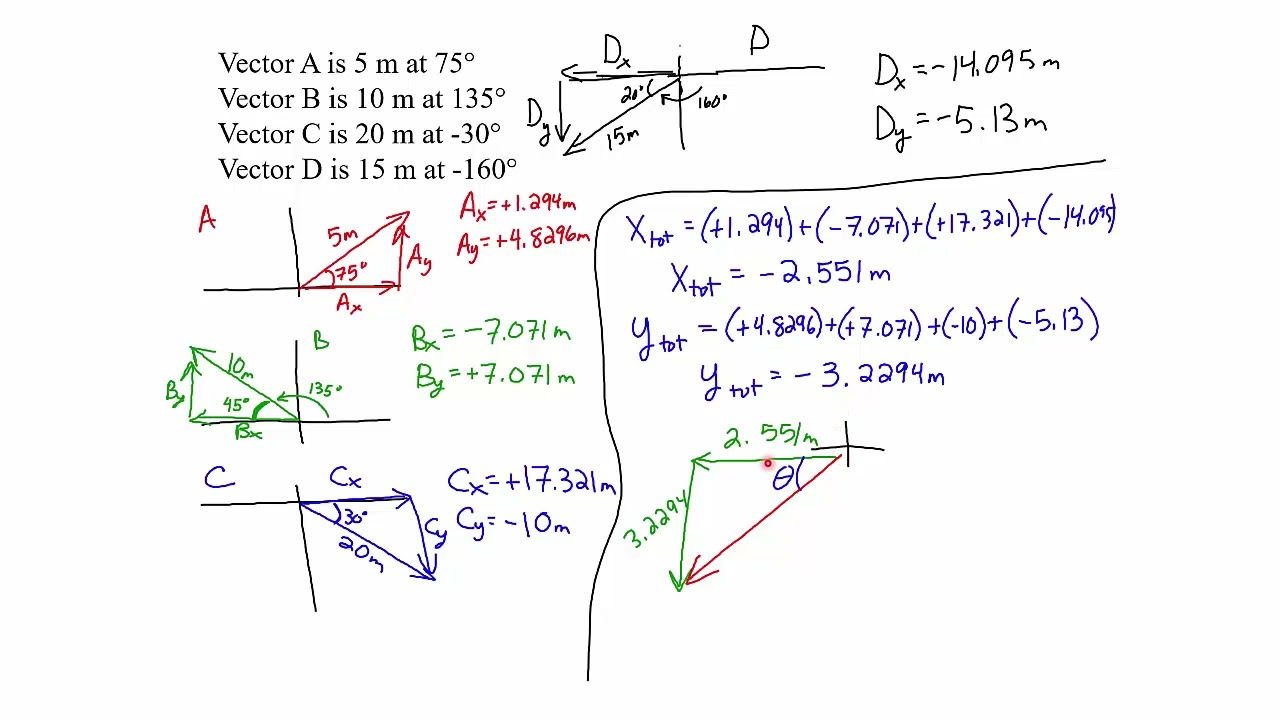 Vector A is 5 m at 75°
Vector B is 10 m at 135°
Vector C is 20 m at -30°
Vector D is 15 m at -160°
Dx
D
Dy
20°
160°
15m
Dx = -14.095m
Dy = -5.13m
A
5m
75°
Ay
Ax
Ax = +1.294m
Ay = +4.8296m
B
10m
135°
By
45°
Bx
Bx = -7.071m
By = +7.071m
C
Cx
30°
20m
Cy
Cx = +17.321m
Cy = -10m
Xtot = (+1.294)+(-7.071)+(+17.321)+(-14.095)
Xtot = -2.551m
ytot = (+4.8296)+(+7.071)+(-10)+(-5.13)
ytot = -3.2294m
2.551m
θ
3.2294